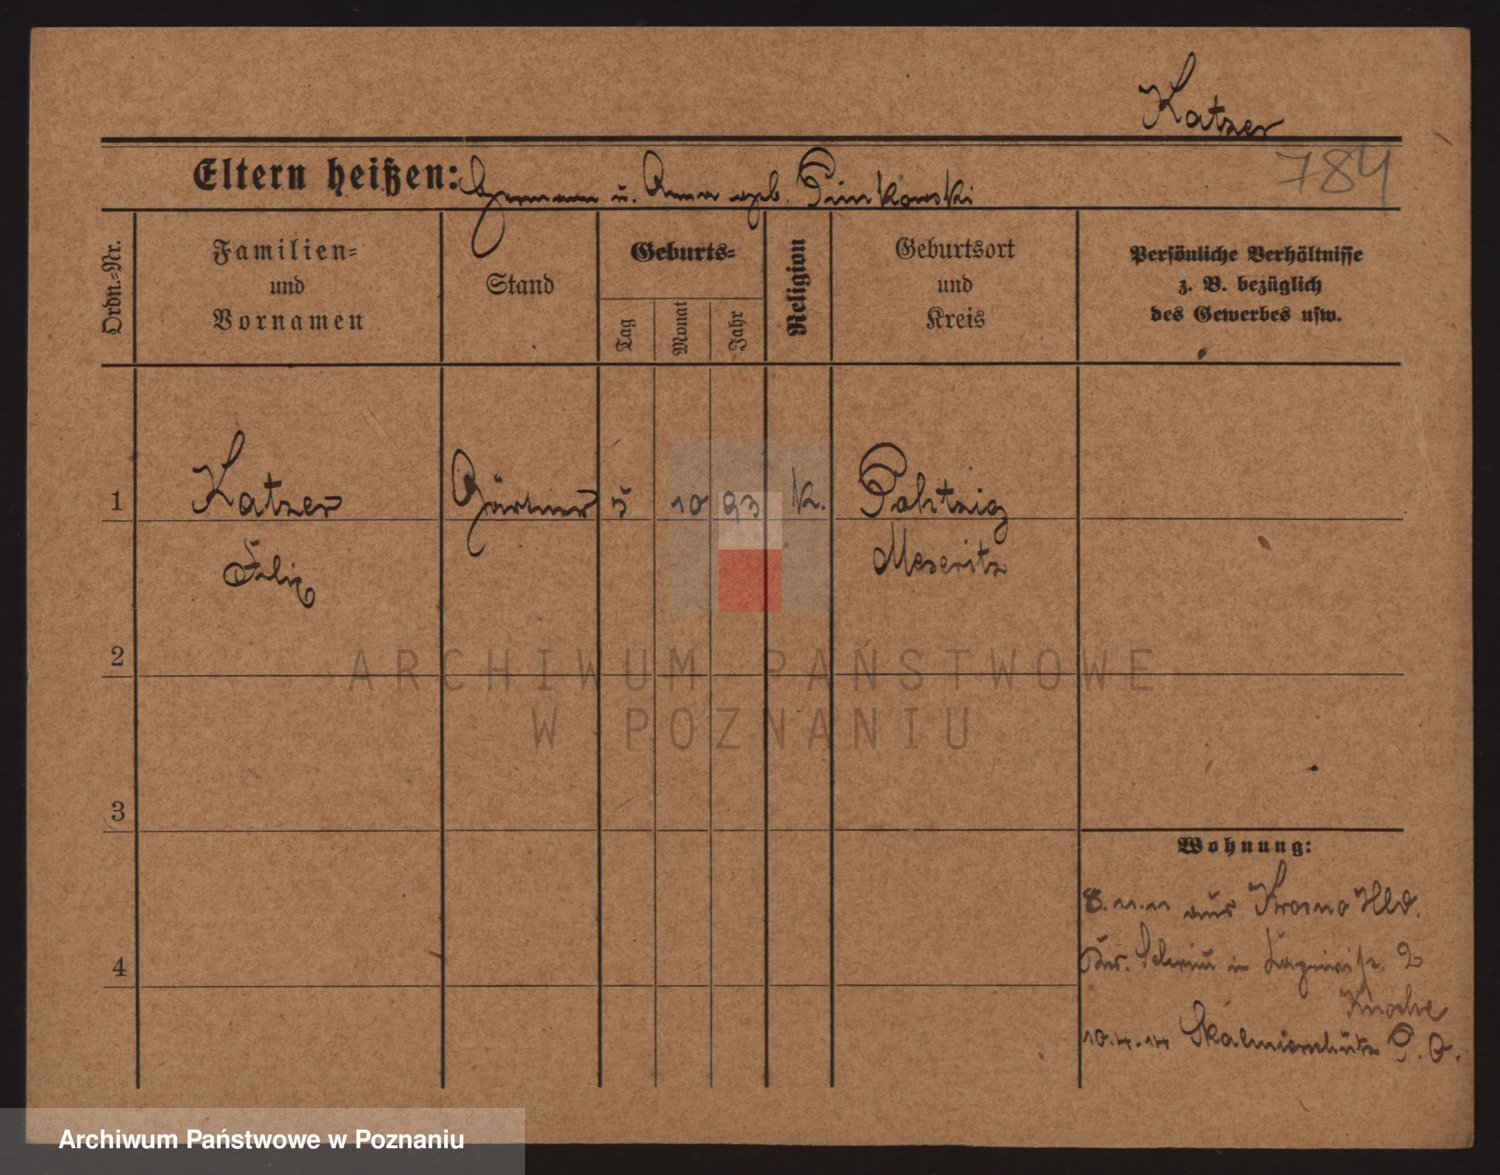 Katzer
784
Eltern heißen: Hermann u. Anna geb. Pinkowski
Ordn.-Nr.
Familien-
und
Vornamen
Stand
Geburts-
Tag
Monat
Jahr
Religion
Geburtsort
und
Kreis
Persönliche Verhältnisse
z. B. bezüglich
des Gewerbes usw.
1
Katzer
Gärtner
5
10
93
K.
Meseritz
Felix
2
ARCHIWUM PAŃSTWOWE
W POZNANIU
3
Wohnung:
8.11.11 aus Krosno Hld.
Schrimm in 2
4
10.4.14 Skalmierschütz P. O.
Archiwum Państwowe w Poznaniu